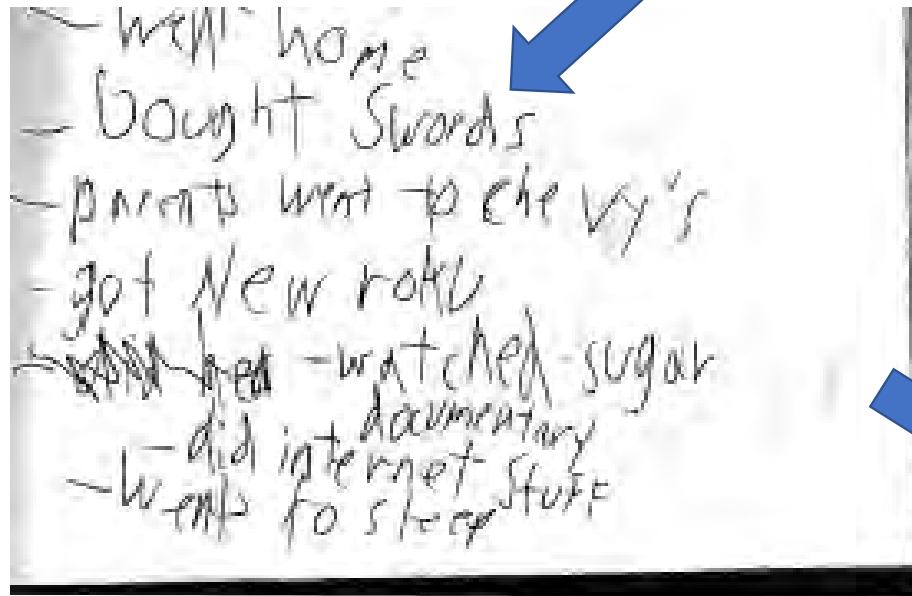 - went home
- bought Swords
- parents went to chevy's
- got New roku
- watched sugar
documentary
- did internet stuff
- went to sleep